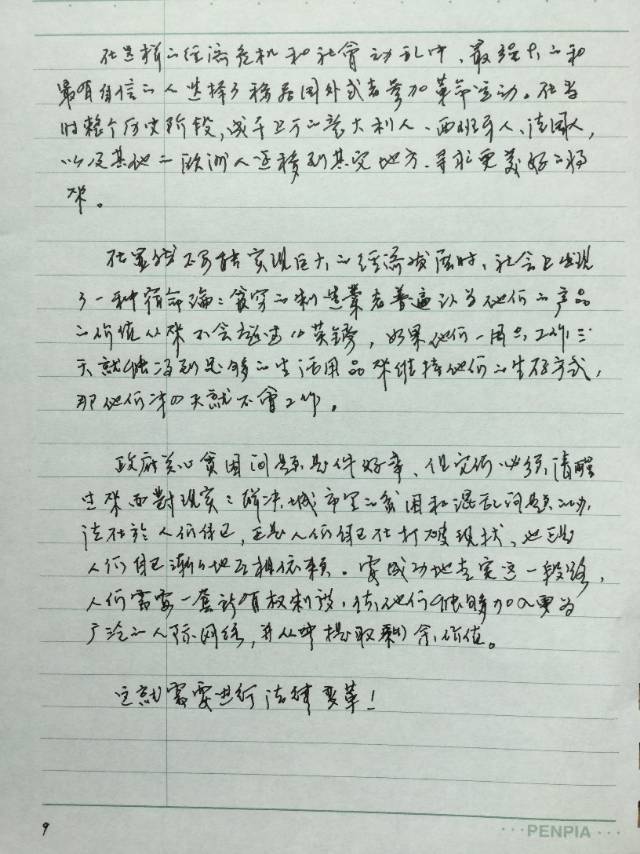 在这样的经济危机和社會动乱中，最强大的和
最有自信的人选择了移居国外或者参加革命运动。在当
时整个历史阶段，成千上万的意大利人、西班牙人、法国人，
以及其他的欧洲人迁移到其它地方，寻求更美好的将
来。
在显然不可能实现巨大的经济发展时，社会上出现
了一种宿命论：贫穷的制造業者普遍认为他们的产品
的价值从来不会超过10英镑，如果他们一周只工作三
天就能得到足够的生活用品来维持他们的生存方式，
那他们第四天就不會工作。
政府关心贫困问题是件好事，但它们必须清醒
过来面對现实：解决城市里的贫困和混乱问题的办
法在於人们自己，正是人们自己在打破现状，也正是
人们自己渐渐地互相依赖。要成功地走完这一段路，
人们需要一套所有权制度，让他们能够加入更为
广泛的人际网络，并从中提取剩余价值。
这就需要进行法律变革！
9
PENPIA